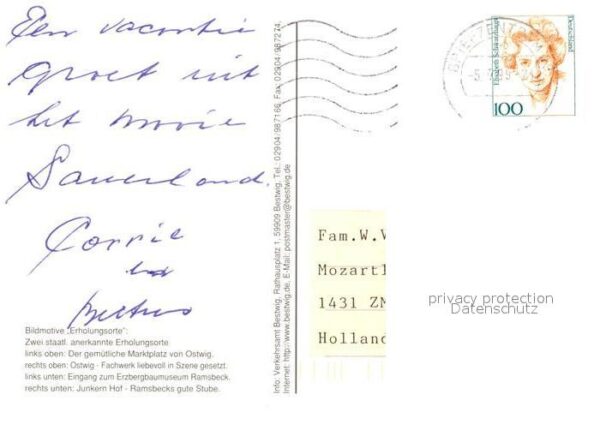 Een vacantie
groet uit
het mooie
Sauerland.
Corrie
en
Bildmotive „Erholungsorte":
Zwei staatl. anerkannte Erholungsorte
links oben: Der gemütliche Marktplatz von Ostwig.
rechts oben: Ostwig - Fachwerk liebevoll in Szene gesetzt.
links unten: Eingang zum Erzbergbaumuseum Ramsbeck.
rechts unten: Junkern Hof - Ramsbecks gute Stube.
Info: Verkehrsamt Bestwig, Rathausplatz 1, 59909 Bestwig, Tel.: 02904/987166, Fax: 02904/987274,
Internet: http://www.bestwig.de, E-Mail: postmaster@bestwig.de
Elisabeth Schwarzhaupt
Deutschland
100
Fam.W.V
Mozartl
1431 ZM
Holland
privacy protection
Datenschutz